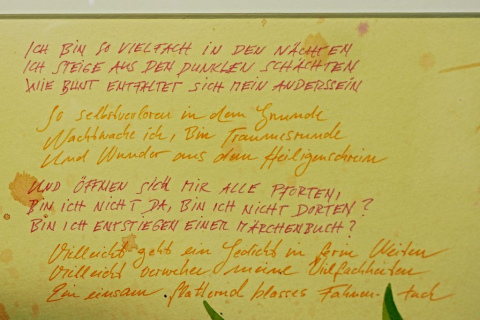 ICH BIN SO VIELFACH IN DEN NÄCHTEN
ICH STEIGE AUS DEN DUNKLEN SCHÄCHTEN
WIE BUNT ENTFALTET SICH MEIN ANDERSSEIN
So selbstverloren in dem Grunde
Nachtwache ich, Bin Traumesrunde
Und Wunder aus dem Heiligenschrein
UND ÖFFNEN SICH MIR ALLE PFORTEN,
BIN ICH NICHT DA, BIN ICH NICHT DORTEN?
BIN ICH ENTSTIEGEN EINEM MÄRCHENBUCH?
Vielleicht geht ein Gedicht in ferne Weiten
Vielleicht verwehen meine Vielfachheiten
Ein einsam flatternd blasses Fahnen-tuch